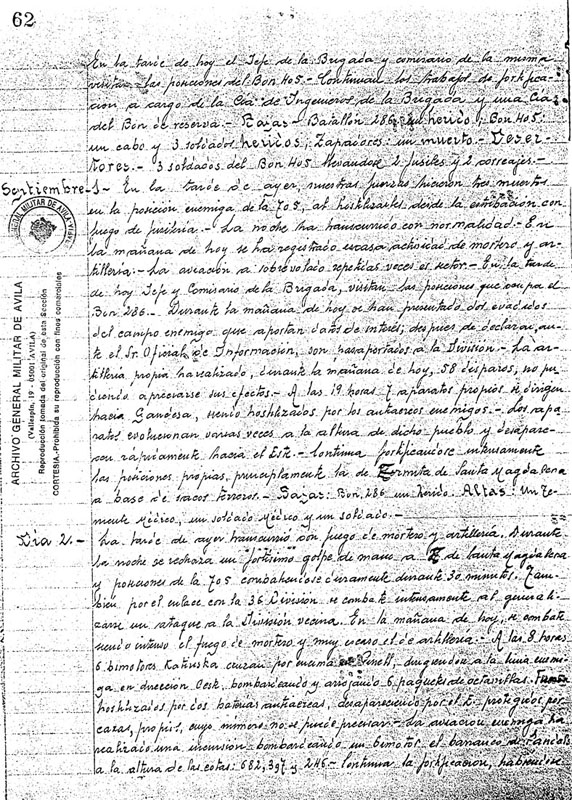 62
En la tarde de hoy el Jefe de la Brigada y comisario de la misma
visitan las posiciones del Bon 405.- Continuan los trabajos de fortifica-
ción, a cargo de la Cia de Ingenieros de la Brigada y una Cia
del Bon de reserva.- Bajas.- Batallón 286 un herido; Bon 405:
un cabo y 3 soldados heridos; Zapadores: un muerto.- Deser-
tores.- 3 soldados del Bon 405 llevandose 2 fusiles y 2 correajes.-
Septiembre-1- En la tarde de ayer, nuestras fuerzas hicieron tres muertos
en la posición enemiga de la 705, al hostilizarles desde la con
fuego de fusileria.- La noche ha transcurrido con normalidad.- En
la mañana de hoy se ha registrado escasa actividad de mortero y ar-
tilleria.- La aviación a sobrevolado repetidas veces el sector.- En la tarde
de hoy Jefe y Comisario de la Brigada, visitan las posiciones que ocupa el
Bon 286.- Durante la mañana de hoy se han presentado dos evadidos
del campo enemigo que aportan datos de interés; despues de declarar, an-
te el Sr. Oficial de Información, son pasaportados a la Division.- La ar-
tilleria propia ha realizado, durante la mañana de hoy, 58 disparos, no pu-
diendo apreciarse sus efectos.- A las 19 horas 7 aparatos propios se dirigen
hacia Gandesa, siendo hostilizados por los antiaereos enemigos.- Los apa-
ratos evolucionan varias veces a la altura de dicho pueblo y desapare-
cen rápidamente hacia el Este.- Continua fortificandose intensamente
las posiciones propias, principalmente la de Ermita de Santa Magdalena
a base de sacos terreros.- Bajas: Bon. 286 un herido. Altas: Un Te-
niente Médico, un soldado Médico y un soldado.-
Dia 2.- La tarde de ayer transcurrio con fuego de mortero y artilleria. Durante
la noche se rechaza un fortisimo golpe de mano a E. de Santa Magdalena
y posiciones de la 705 combatiendose duramente durante 30 minutos. Tam-
bien por el enlace con la 36 División se combate intensamente al generali-
zarse un ataque a la División vecina. En la mañana de hoy, se combate
siendo intenso el fuego de mortero y muy escaso el de artilleria.- A las 8 horas
6 bimotores Katiuska cruzan por encima de Pinell, dirigiendose a la linia enemi-
ga en dirección Oeste, bombardeando y arrojando 6 paquetes de octavillas.
hostilizados por dos baterias antiaereas, desapareciendo por el E. protegidos por
cazas, propios, cuyo número no se puede precisar.- La aviación enemiga ha
realizado una incursión bombardeando un bimotor el barranco de
a la altura de las cotas: 682, 397 y 246.- Continua la fortificación, habiendose
ARCHIVO GENERAL MILITAR DE AVILA
(Vallespín, 19 - 05001 AVILA)
Reproducción tomada del original de esta Sección
CORTESIA.-Prohibida su reproducción con fines comerciales